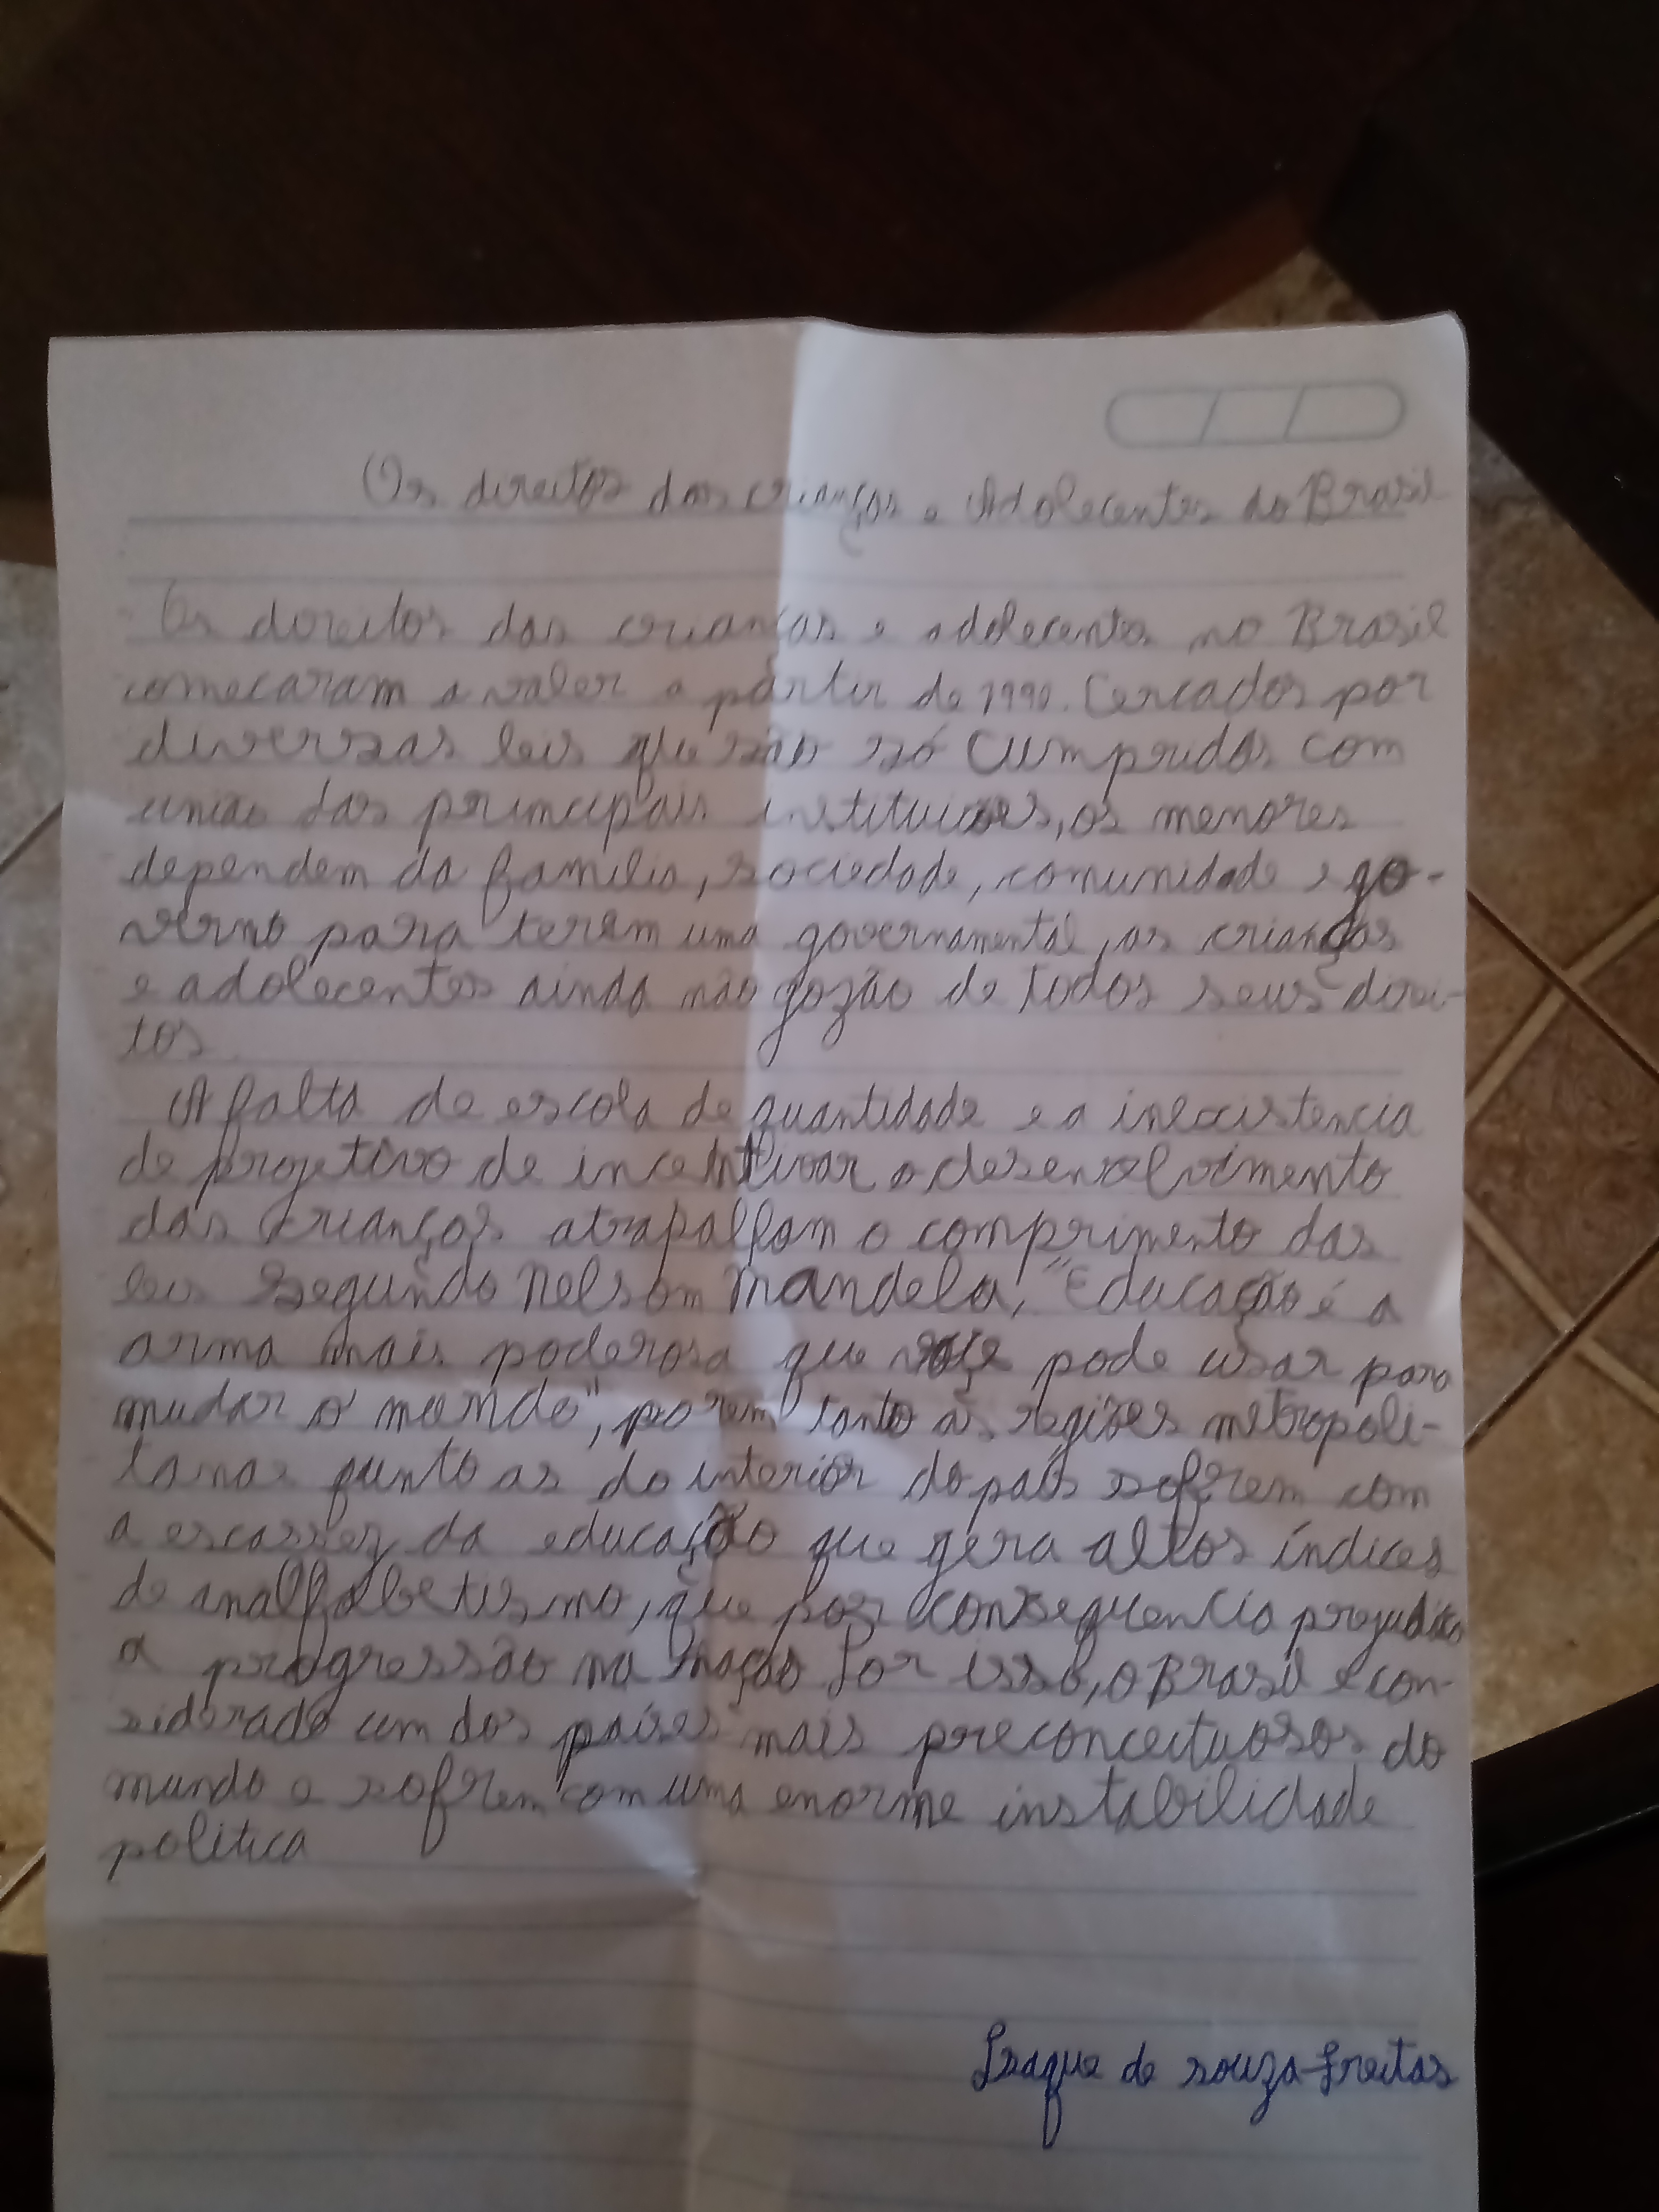 Os direitos das crianças e Adolecentes do Brasil
Os doreitos das crianças e adolecentes no Brasil
comecaram a valer a pártir de 1990. Cercados por
diversas leis que são só cumpridas com
união das principais instituicões, os menores
dependem da familia, sociedade, comunidade e go-
verno para terem uma governamental, as crianças
e adolecentes ainda não gozão de todos seus direi-
tos.
A falta de escola de quantidade e a inexistencia
de projetivo de incentivar o desenvolvimento
das crianças atrapalham o comprimento das
leis Segundo Nelson Mandela, "Educação é a
arma mais poderosa que você pode usar para
mudar o mundo", porem tanto as regiões metropoli-
tanas junto as do interior do país sofrem com
a escassez da educação que gera altos índices
de analfabetismo, que por consequencia prejudica
a progressão na nação Por isso, o Brasil e con-
siderado um dos países mais preconceituosos do
mundo e sofrem com uma enorme instabilidade
politica
Isaque de souza Freitas